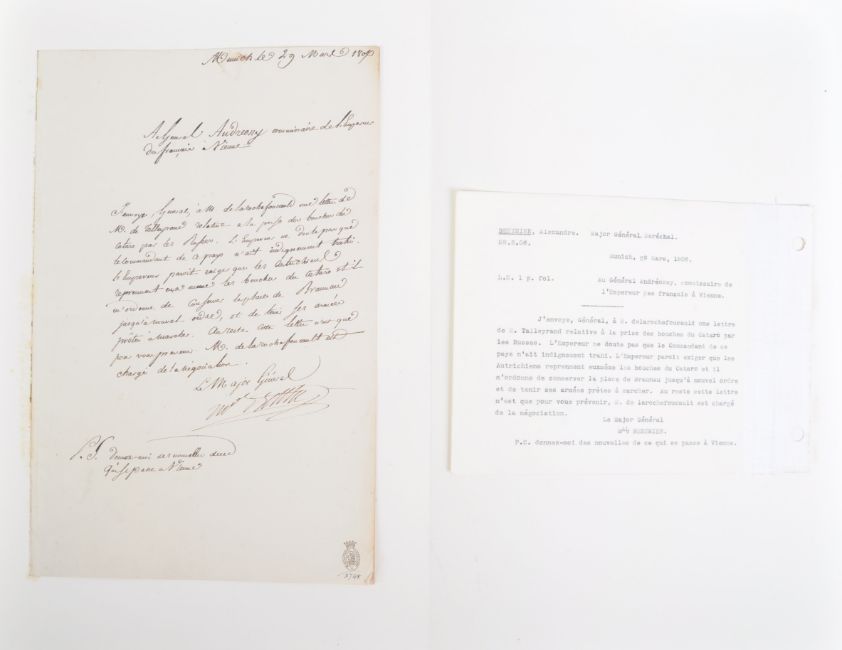 Munich le 29 Mars 1806
Au Général Andréossy commissaire de l'Empereur
des français à Vienne
J'envoye Général, à M. de larochefoucault une lettre de
M. de Tallegrand relative à la prise des bouches du
Cataro par les Russes. L'Empereur ne doute pas que
le commandant de ce pays n'ait indignement trahi.
l'Empereur paroit exiger que les autrichiens
reprennent eux mêmes les bouches du Cataro et il
m'ordonne de conserver la place de Braunau
jusqu'à nouvel ordre, et de tenir ses armées
prêtes à marcher. Au reste cette lettre n'est que
pour vous prévenir M. de larochefoucault est
chargé de la négociation.
Le Major Général
P.S. Donnez-moi des nouvelles de ce
qui se passe à Vienne
3748
Alexandre. Major Général Maréchal.
Munich, 29 Mars, 1806.
L.S. 1 p. fol. Au Général Andréossy, commissaire de
l'Empereur des français à Vienne.
J'envoye, Général, à M. delarochefoucault une lettre
de M. Tallegrand relative à la prise des bouches du Cataro par
les Russes. L'Empereur ne doute pas que le Commandant de ce
pays n'ait indignement trahi. L'Empereur paroit exiger que les
Autrichiens reprennent euxmêmes les bouches du Cataro et il
m'ordonne de conserver la place de Braunau jusqu'à nouvel ordre
et de tenir ses armées prêtes à marcher. Au reste cette lettre
n'est que pour vous prévenir, M. de larochefoucault est chargé
de la négociation.
Le Major Général
P.S. donnez-moi des nouvelles de ce qui se passe à Vienne.